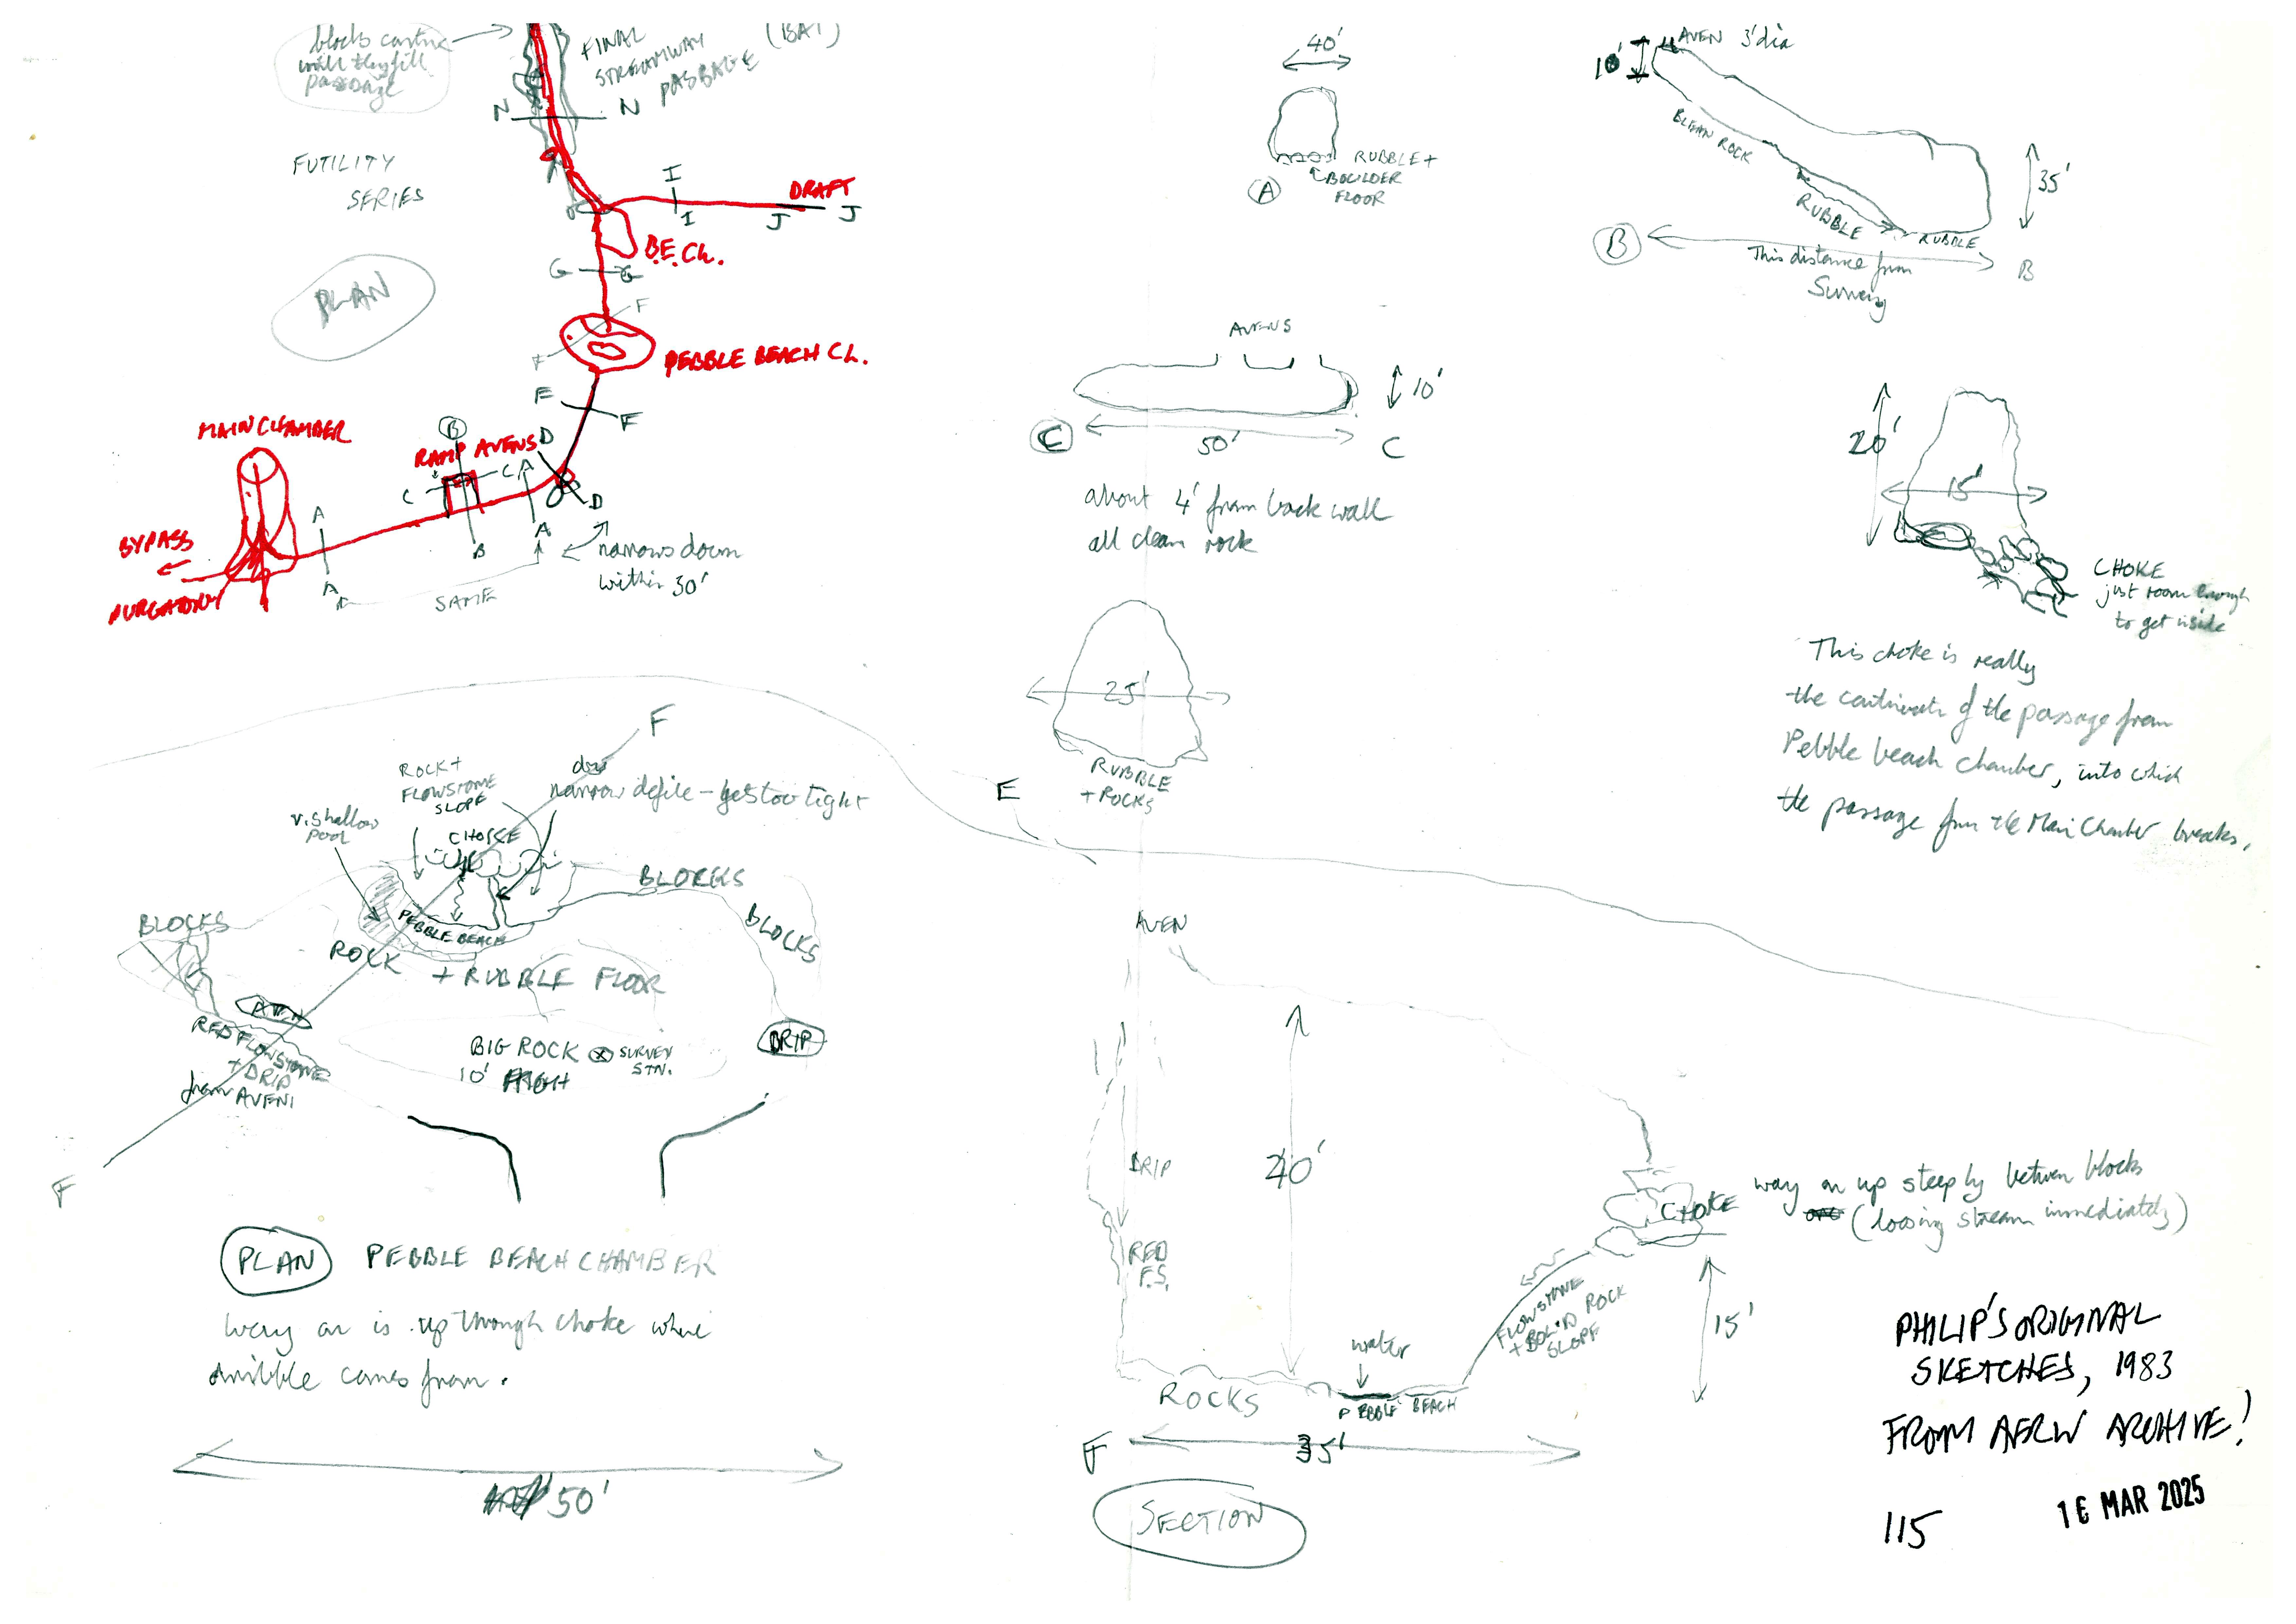 blocks continue
until they fill
passage
FINAL
STREAMWAY
PASSAGE
(BAT)
N
N
FUTILITY
SERIES
PLAN
I
I
DRAFT
J
J
B.E. Ch.
G
G
F
F
PEBBLE BEACH Ch.
E
E
MAIN CHAMBER
B
RAMP AVENS
D
C
C
A
A
B
A
D
A
A
SAME
narrows down
within 30'
BYPASS
PURGATORY
40'
RUBBLE +
BOULDER
FLOOR
A
AVEN 3' dia
10'
CLEAN ROCK
RUBBLE
RUBBLE
35'
B
This distance from
Survey
B
AVENS
10'
C
50'
C
about 4' from back wall
all clean rock
20'
15'
CHOKE
just room enough
to get inside
This choke is really
the continuatn of the passage from
Pebble beach chamber, into which
the passage from the Main Chamber breaks.
25'
RUBBLE
+ ROCKS
E
F
ROCK +
FLOWSTONE
SLOPE
dry
narrow defile - gets too tight
v. shallow
pool
CHOKE
BLOCKS
BLOCKS
BLOCKS
PEBBLE BEACH
ROCK
+ RUBBLE FLOOR
AVEN
RED FLOWSTONE
+ DRIP
from AVEN
BIG ROCK
10' HIGH
SURVEY
STN.
DRIP
F
PLAN
PEBBLE BEACH CHAMBER
Way on is up through choke where
dribble comes from.
50'
AVEN
DRIP
RED
F.S.
ROCKS
water
PEBBLE BEACH
FLOWSTONE
+ SOLID ROCK
SLOPE
CHOKE
way on up steeply between blocks
(loosing stream immediately)
15'
F
35'
SECTION
PHILIP'S ORIGINAL
SKETCHES, 1983
FROM AERW ARCHIVE!
115
16 MAR 2025